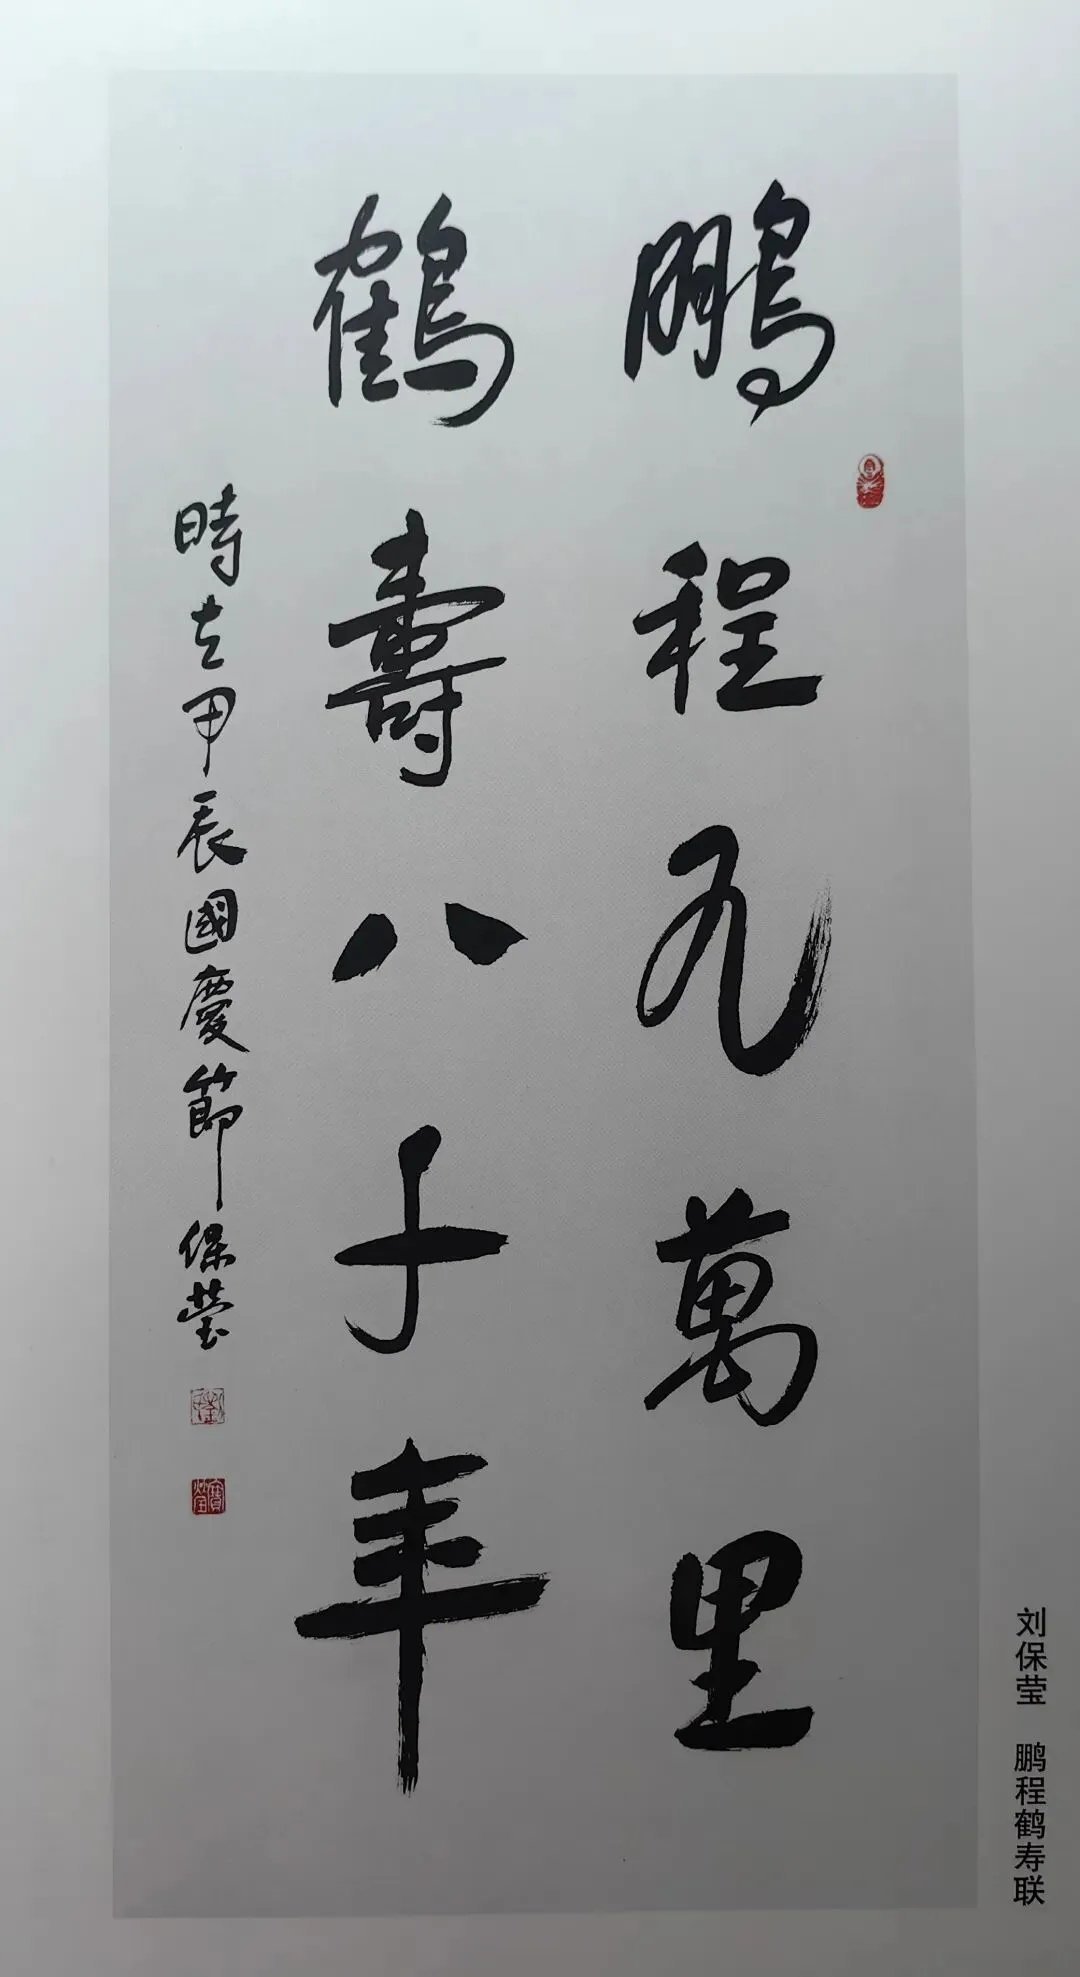 鵬程九萬里
鶴壽八千年
時在甲辰國慶節保瑩
刘保莹 鹏程鹤寿联